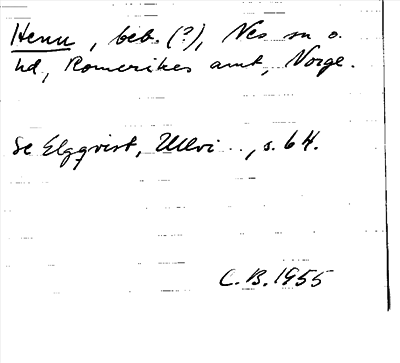 Henu, beb. (?), Nes sn o.
hd, Romerikes amt, Norge.
Se Elgqvist, Ullvi .., s. 64.
C.B. 1955